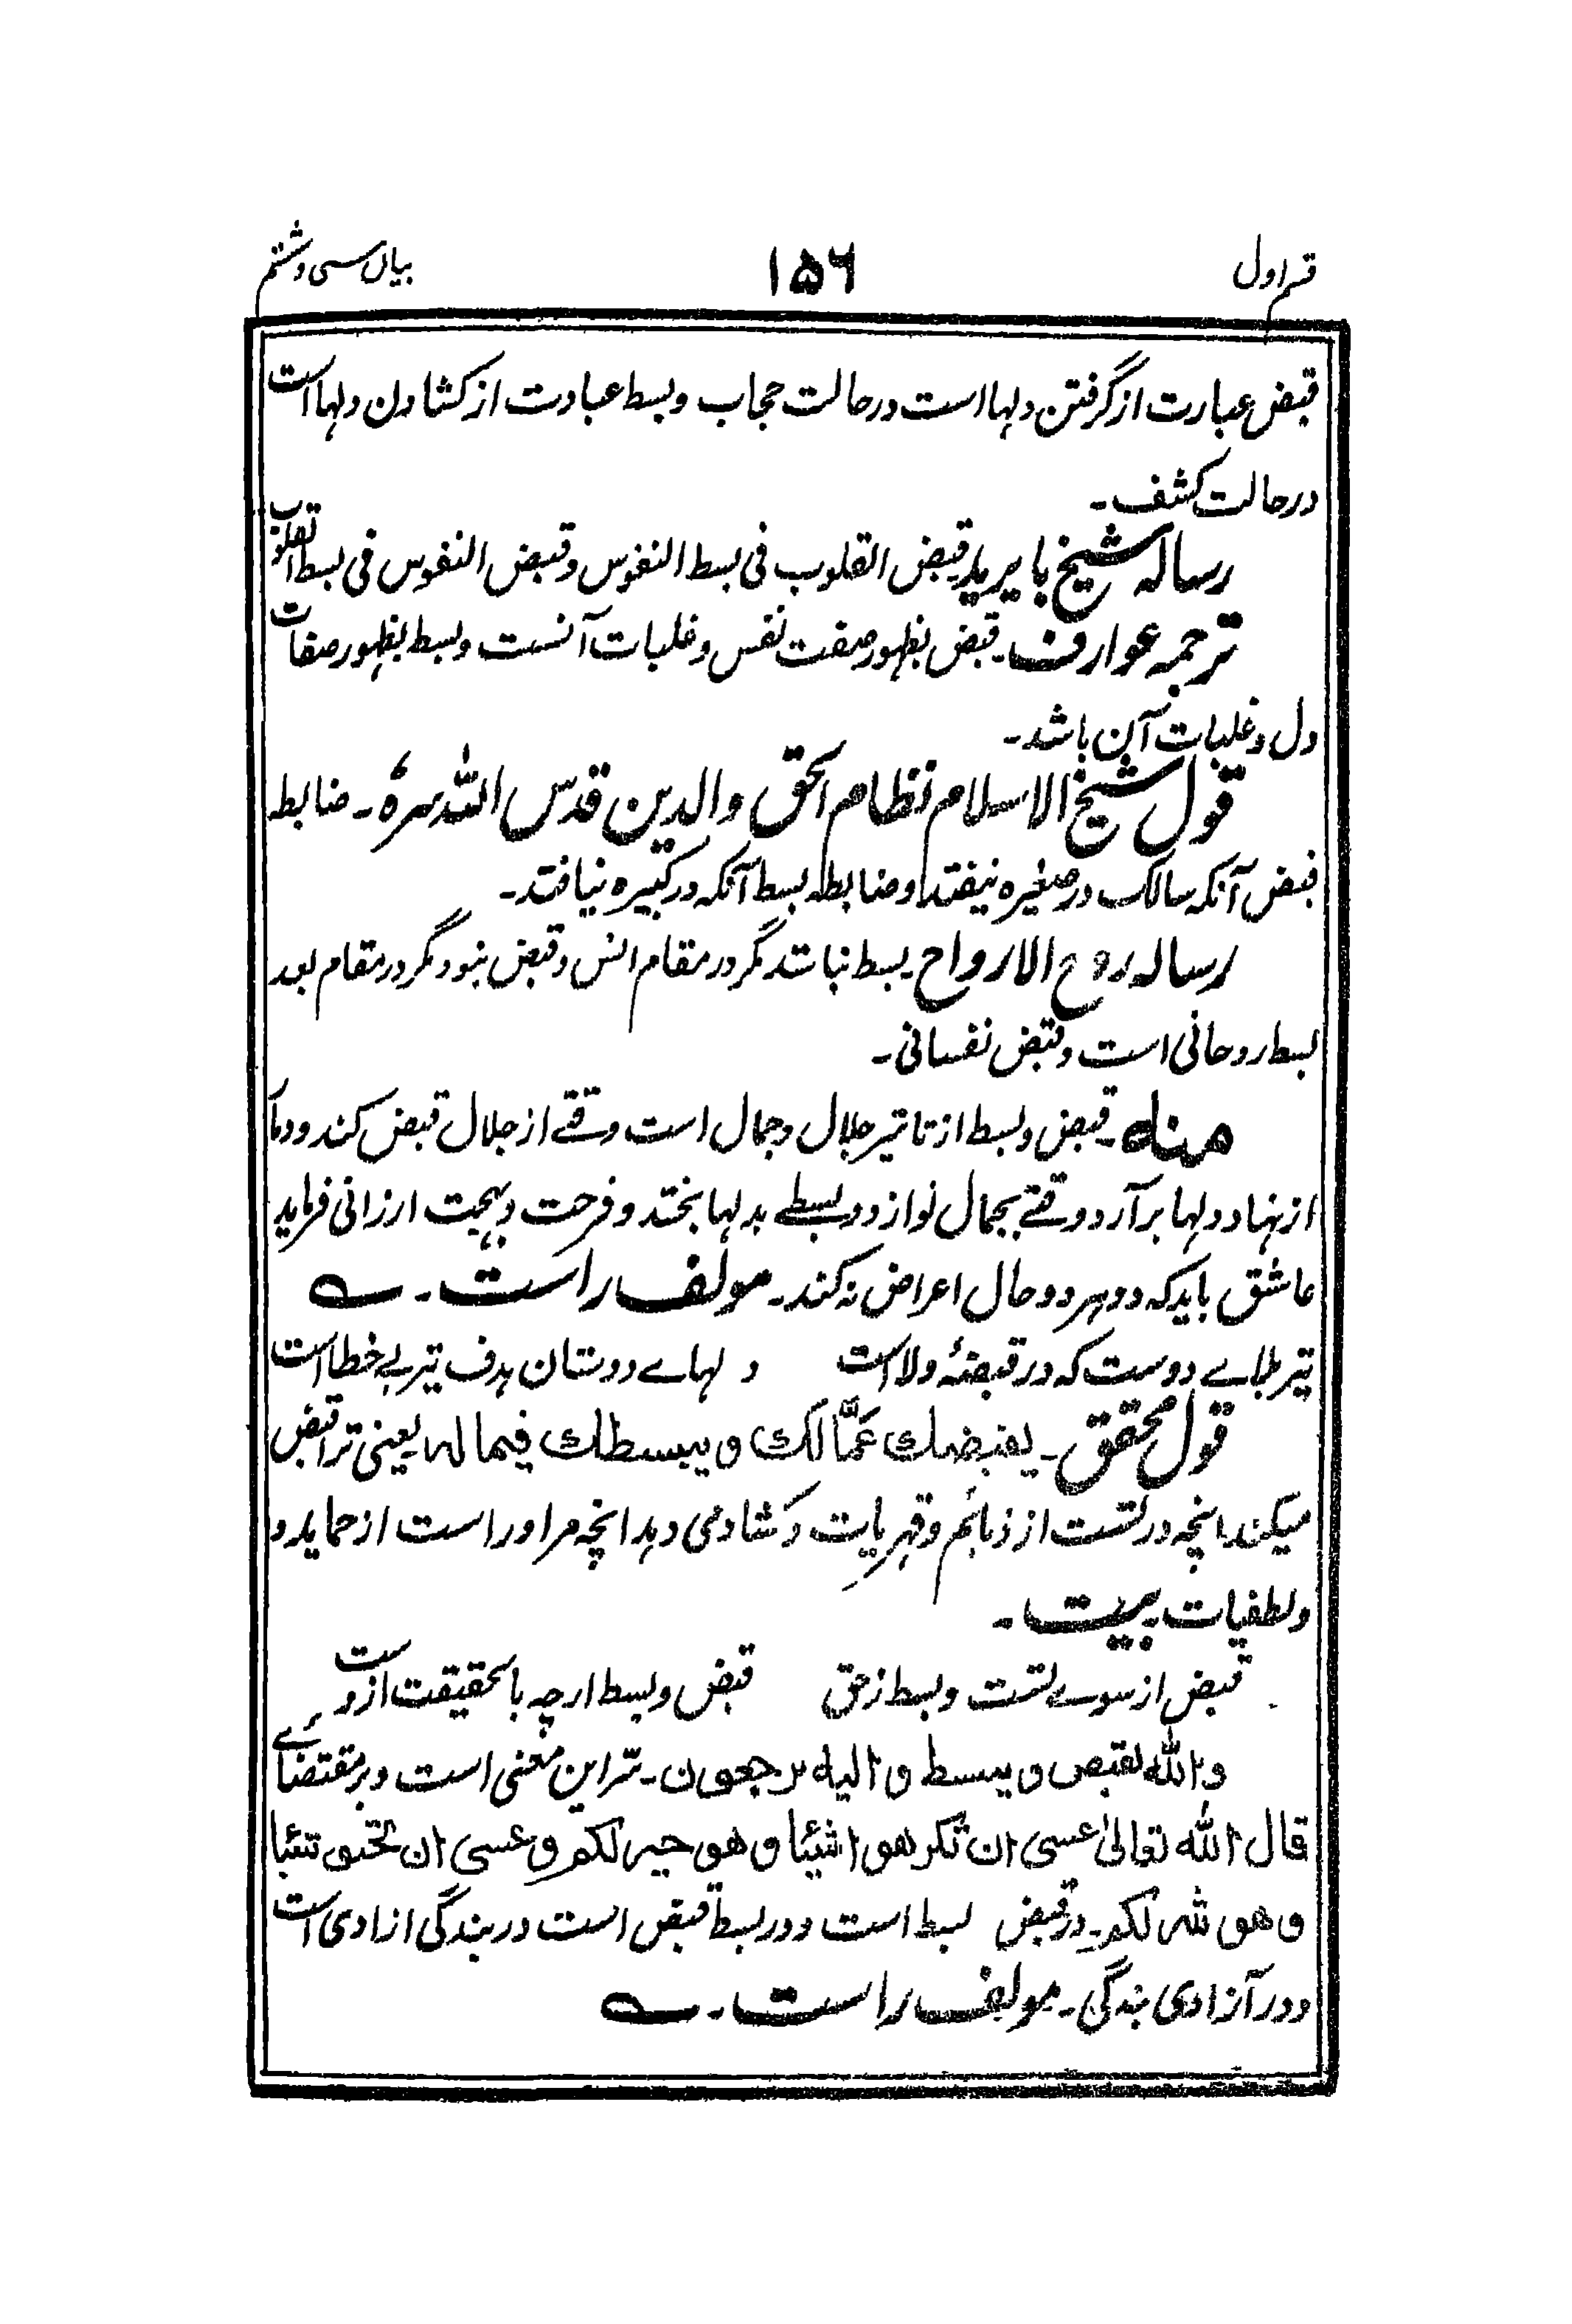 قسم اول ۱۵۶ بیان سی و هشتم
قبض عبارت از گرفتن دلها است در حالت حجاب و بسط عبادت از کشادن دلها است
در حالت کشف۔
رسالہ شیخ بایزید قبض القلوب فی بسط النفوس و قبض النفوس فی بسط القلوب
ترجمہ عوارف۔ قبض بظہور صفت نفس و غلبات آنست و بسط بظہور صفات
دل و غلبات آن باشد۔
قول شیخ الاسلام نظام الحق والدین قدس اللہ سرہٗ۔ ضابطہ
قبض آنکہ سالک در صغیرہ نیفتد و ضابطہ بسط آنکہ در کبیرہ نیافتد۔
رسالہ روح الارواح۔ بسط نباشد مگر در مقام انس و قبض نبود مگر در مقام بعد
بسط روحانی است و قبض نفسانی۔
منہ۔ قبض و بسط از تاثیر جلال و جمال است وقتے از جلال قبض کند و دمار
از نہاد دلہا برآرد و وقتے بجمال نوازد و بسطے بدلہا بخشد و فرحت و بہجت ارزانی فرماید
عاشق باید کہ در ہر دو حال اعراض نہ کند۔ مولف راست۔ ؎
تیر بلاے دوست کہ در قبضۂ ولا است دلہاے دوستان ہدف تیر بے خطا است
قول محقق۔ یقبضک عمّا لک و یبسطک فیما لہ یعنی ترا قبض
میکند انچہ در تست از ذمائم و قہریات و کشاد می دہد انچہ مر او راست از حماید و
و لطفیات بیت۔
قبض از سوے تست و بسط ز حق قبض و بسط ار چہ با لحقیقت ازوست
واللہ یقبض و یبسط و الیہ ترجعون۔ سرّ این معنی است و بر مقتضاے
قال اللہ تعالیٰ عسی ان تکرھوا شیئا و ھو خیر لکم و عسی ان تحبو شیئا
و ھو شر لکم۔ در قبض بسط است و در بسط قبض است در بندگی ازادی است
و در آزادی بندگی۔ مولف راست۔ ؎